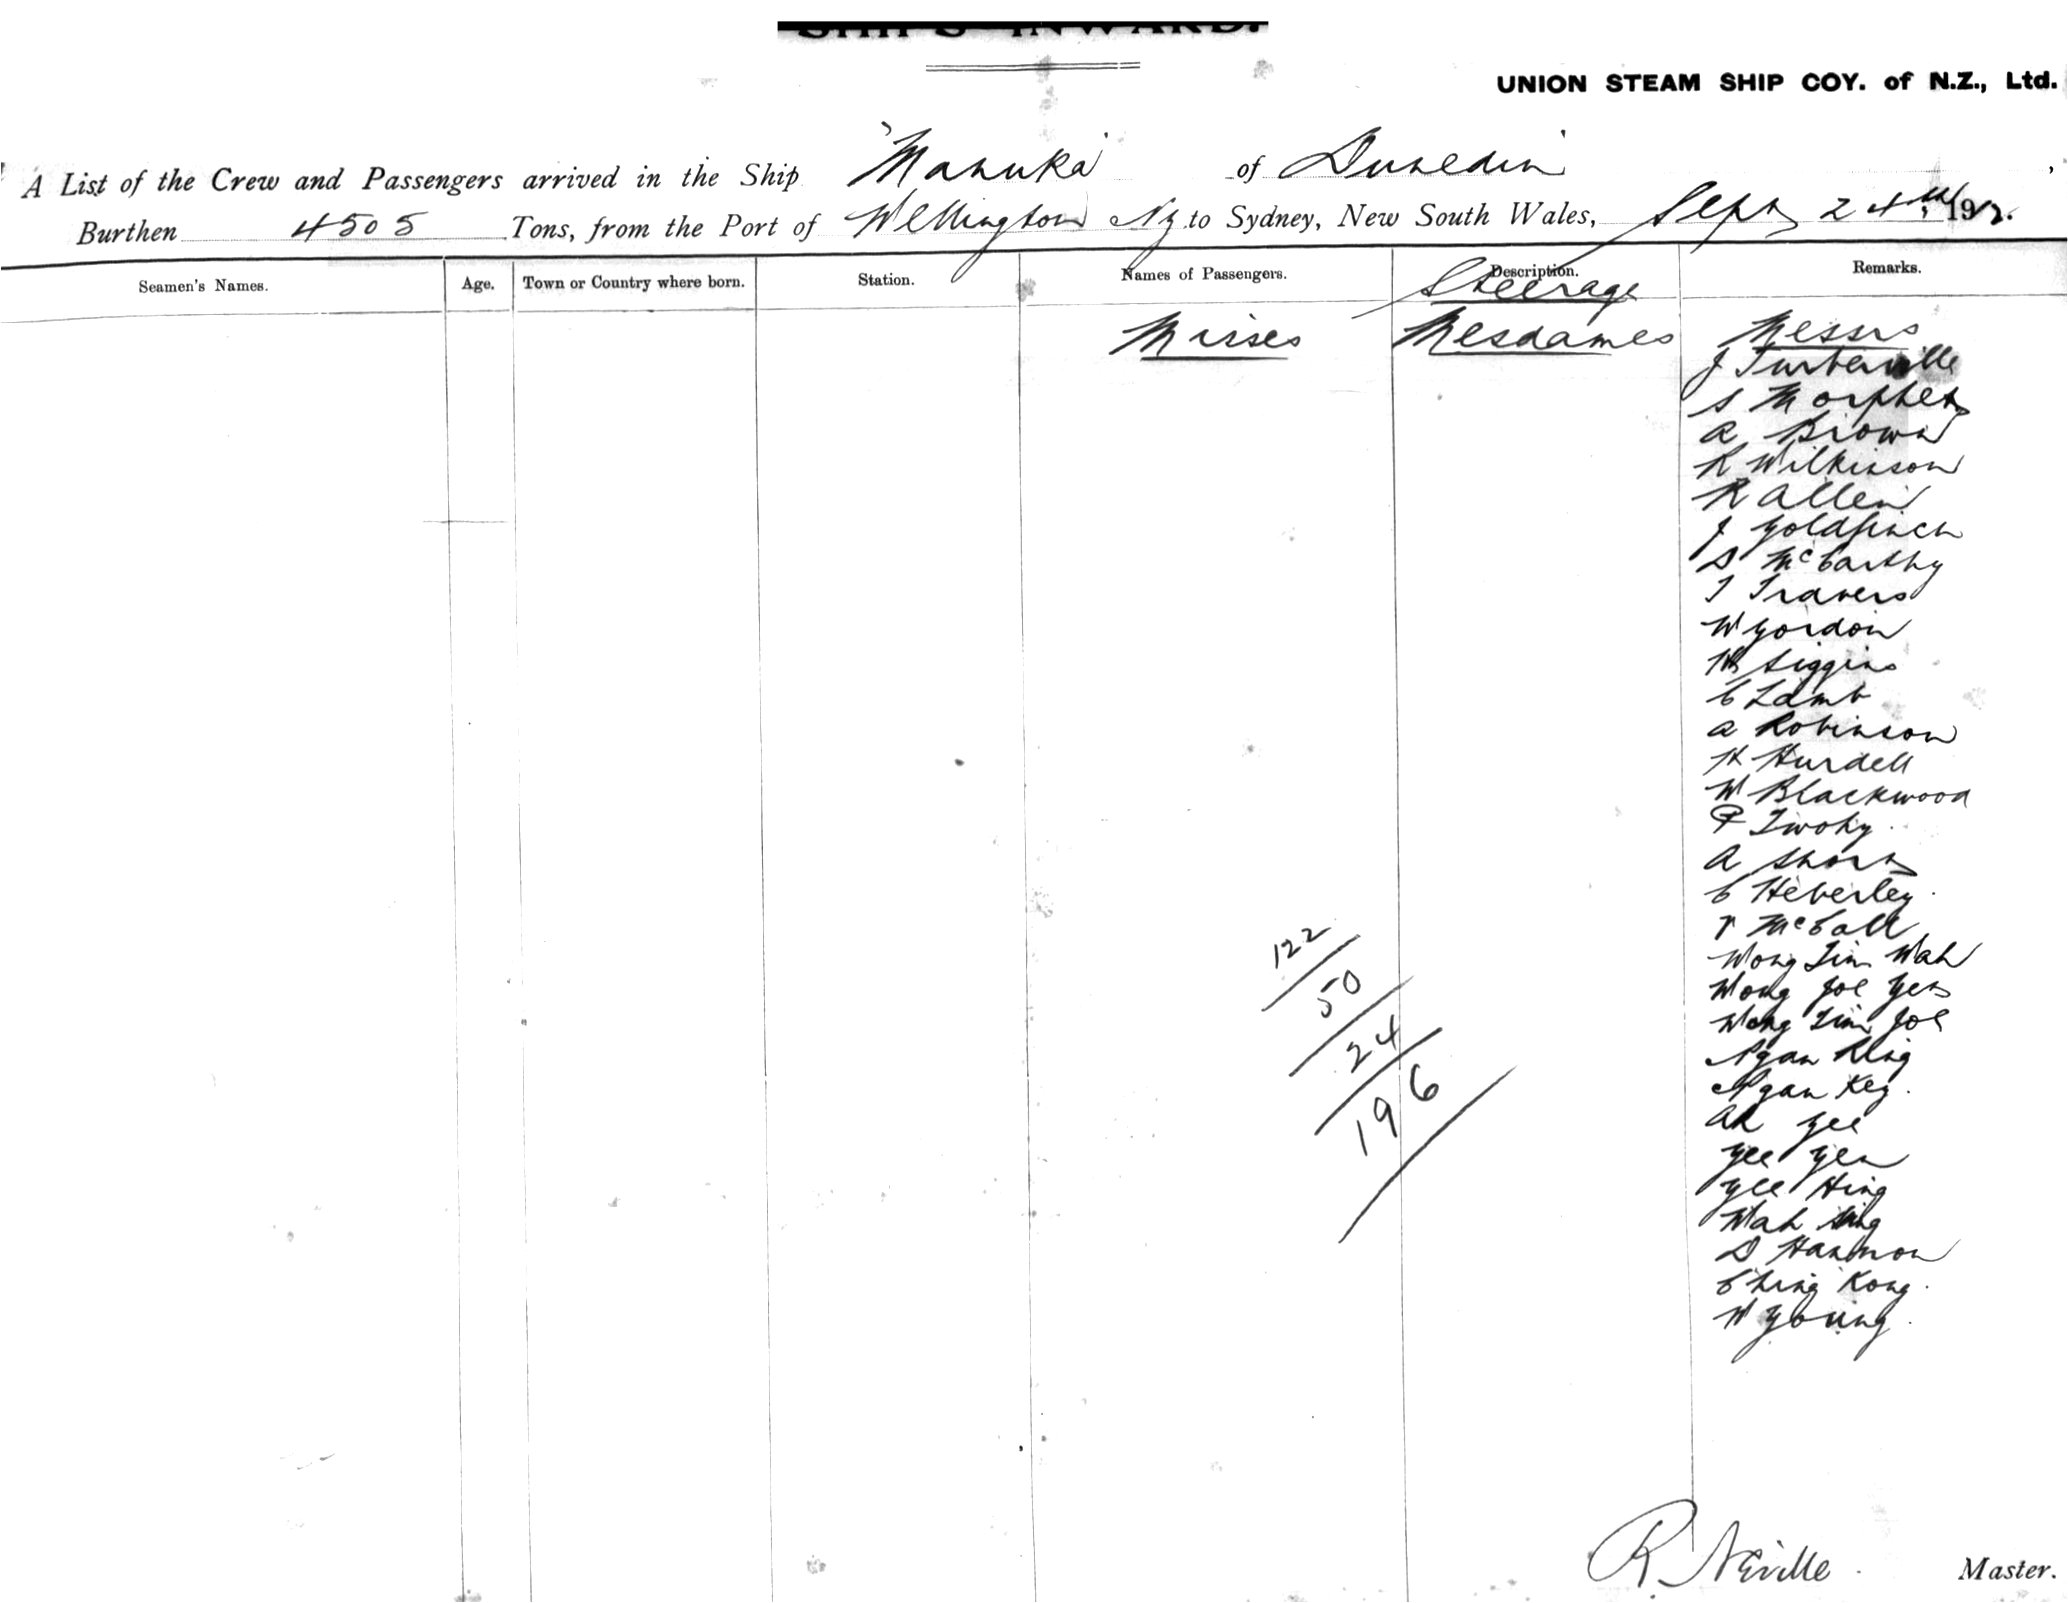 SHIPS INWARD.
UNION STEAM SHIP COY. of N.Z., Ltd.
A List of the Crew and Passengers arrived in the Ship "Manuka" of Dunedin
Burthen 4505 Tons, from the Port of Wellington Nz to Sydney, New South Wales, Sept 24th 1912.
Seamen's Names. Age. Town or Country where born. Station. Names of Passengers. Description. Remarks.
Steerage
Misses Mesdames Messrs
J Turberville
S Morphet
A Brown
R Wilkinson
R Allen
J Goldfinch
D McCarthy
T Travers
W Gordon
Siggins
C Lamb
A Robinson
H Hurdell
W Blackwood
P Twohy
A Short
C Heberley
McCall
Wong Tim Wah
Wong Joe Yet
Wong Tim Joe
Ngan King
Ngan Key
Ah Yee
Yee Yen
Yee Hing
Wah Sing
D Hannon
Ching Kong
W Young
122
50
24
196
R. Neville Master.